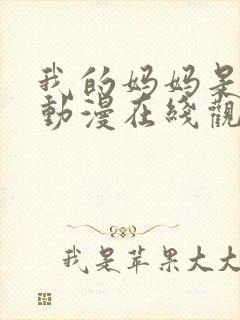 我的妈妈是
動漫在綫觀
我是苹果大大